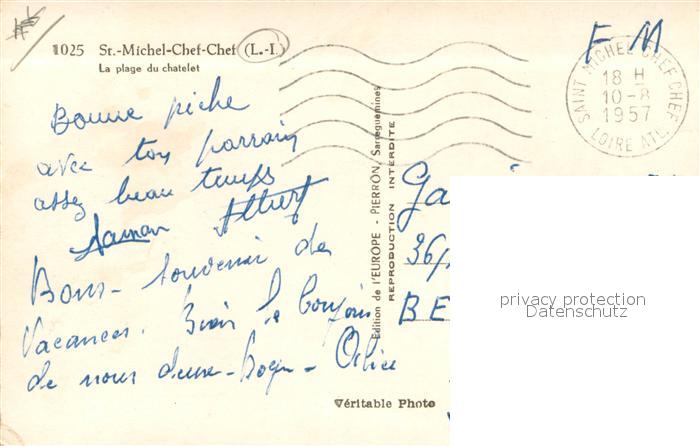 1025 St.-Michel-Chef-Chef (L.-I.)
La plage du chatelet
Bonne pêche
avec ton parrain
assez beau temps
Albert
Bons souvenir de
Vacances. Bien le bonjour
de nous deux
F M
SAINT MICHEL CHEF CHEF
18 H
10-8
1957
LOIRE ATL.
Edition de l'EUROPE - PIERRON, Sarreguemines
REPRODUCTION INTERDITE
Ga
36,
BE
privacy protection
Datenschutz
Véritable Photo